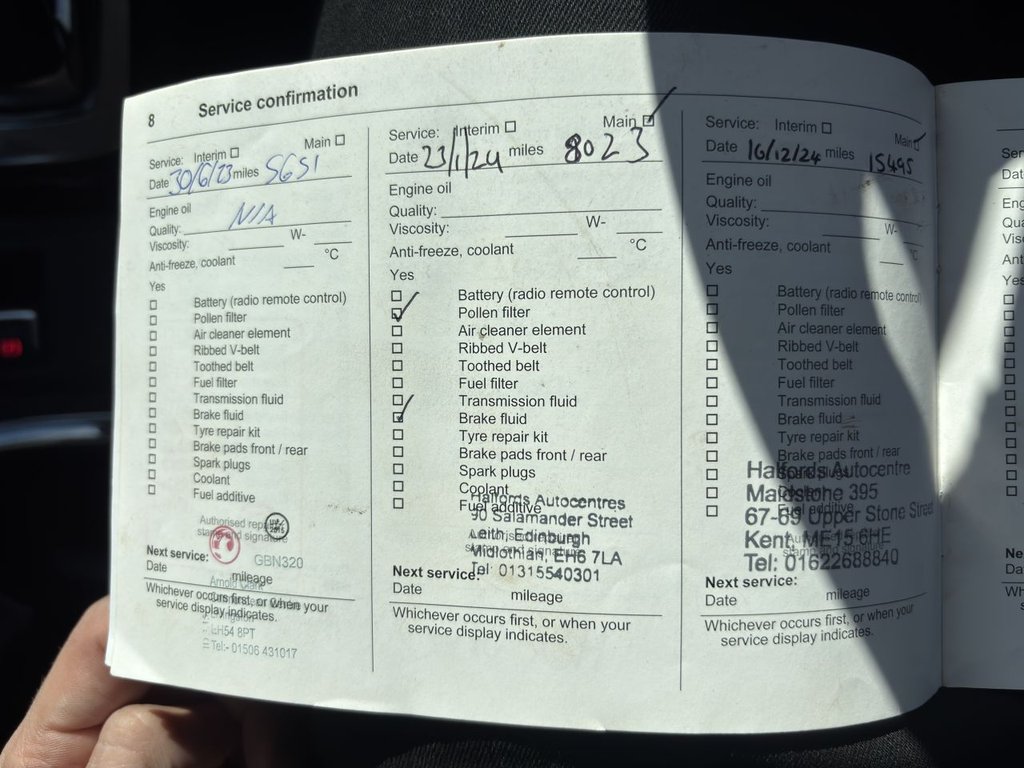 8 Service confirmation
Service: Interim Main
Date 30/6/23 miles 5651
Engine oil
Quality: N/A
Viscosity: W-
Anti-freeze, coolant °C
Yes
Battery (radio remote control)
Pollen filter
Air cleaner element
Ribbed V-belt
Toothed belt
Fuel filter
Transmission fluid
Brake fluid
Tyre repair kit
Brake pads front / rear
Spark plugs
Coolant
Fuel additive
Authorised
stamp and signature
GBN320
Next service:
Date mileage
Arnold Clark
Whichever occurs first, or when your
service display indicates.
EH54 8PT
Tel:- 01506 431017
Service: Interim Main
Date 23/1/24 miles 8023
Engine oil
Quality:
Viscosity: W-
Anti-freeze, coolant °C
Yes
Battery (radio remote control)
Pollen filter
Air cleaner element
Ribbed V-belt
Toothed belt
Fuel filter
Transmission fluid
Brake fluid
Tyre repair kit
Brake pads front / rear
Spark plugs
Coolant
Fuel additive
Halfords Autocentres
90 Salamander Street
Leith, Edinburgh
Midlothian, EH6 7LA
Tel: 01315540301
Next service:
Date mileage
Whichever occurs first, or when your
service display indicates.
Service: Interim Main
Date 16/12/24 miles 15495
Engine oil
Quality:
Viscosity: W-
Anti-freeze, coolant °C
Yes
Battery (radio remote control)
Pollen filter
Air cleaner element
Ribbed V-belt
Toothed belt
Fuel filter
Transmission fluid
Brake fluid
Tyre repair kit
Brake pads front / rear
Spark plugs
Coolant
Fuel additive
Halfords Autocentre
Maidstone 395
67-69 Upper Stone Street
Kent, ME15 6HE
Tel: 01622688840
Next service:
Date mileage
Whichever occurs first, or when your
service display indicates.